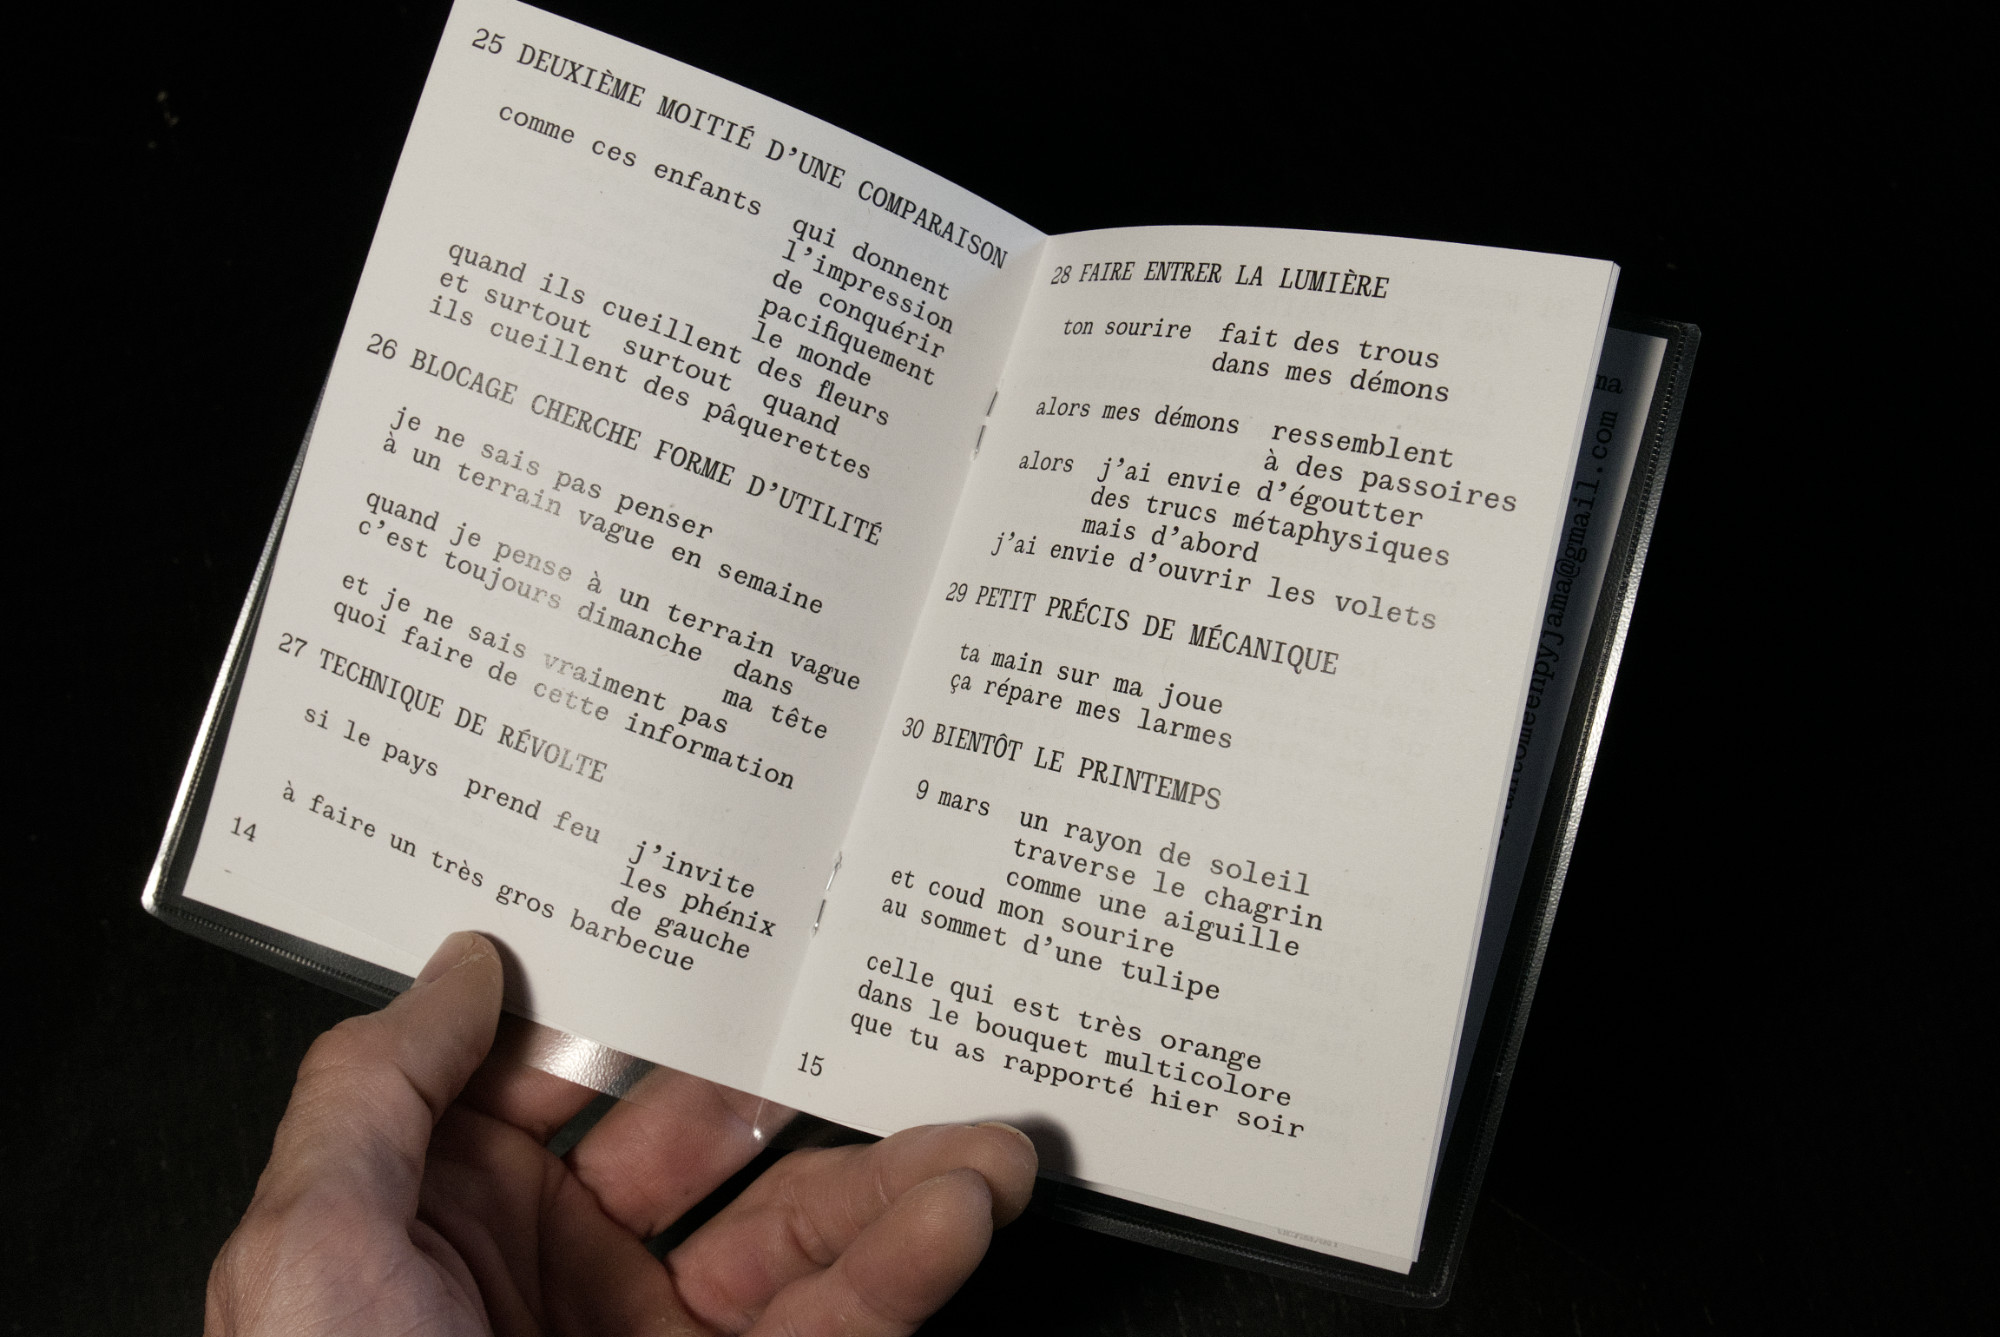 25 DEUXIÈME MOITIÉ D’UNE COMPARAISON
comme ces enfants qui donnent
l’impression
de conquérir
pacifiquement
le monde
quand ils cueillent des fleurs
et surtout surtout quand
ils cueillent des pâquerettes
26 BLOCAGE CHERCHE FORME D’UTILITÉ
je ne sais pas penser
à un terrain vague en semaine
quand je pense à un terrain vague
c’est toujours dimanche dans
ma tête
et je ne sais vraiment pas
quoi faire de cette information
27 TECHNIQUE DE RÉVOLTE
si le pays prend feu j’invite
les phénix
de gauche
à faire un très gros barbecue
14
28 FAIRE ENTRER LA LUMIÈRE
ton sourire fait des trous
dans mes démons
alors mes démons ressemblent
à des passoires
alors j’ai envie d’égoutter
des trucs métaphysiques
mais d’abord
j’ai envie d’ouvrir les volets
29 PETIT PRÉCIS DE MÉCANIQUE
ta main sur ma joue
ça répare mes larmes
30 BIENTÔT LE PRINTEMPS
9 mars un rayon de soleil
traverse le chagrin
comme une aiguille
et coud mon sourire
au sommet d’une tulipe
celle qui est très orange
dans le bouquet multicolore
que tu as rapporté hier soir
15